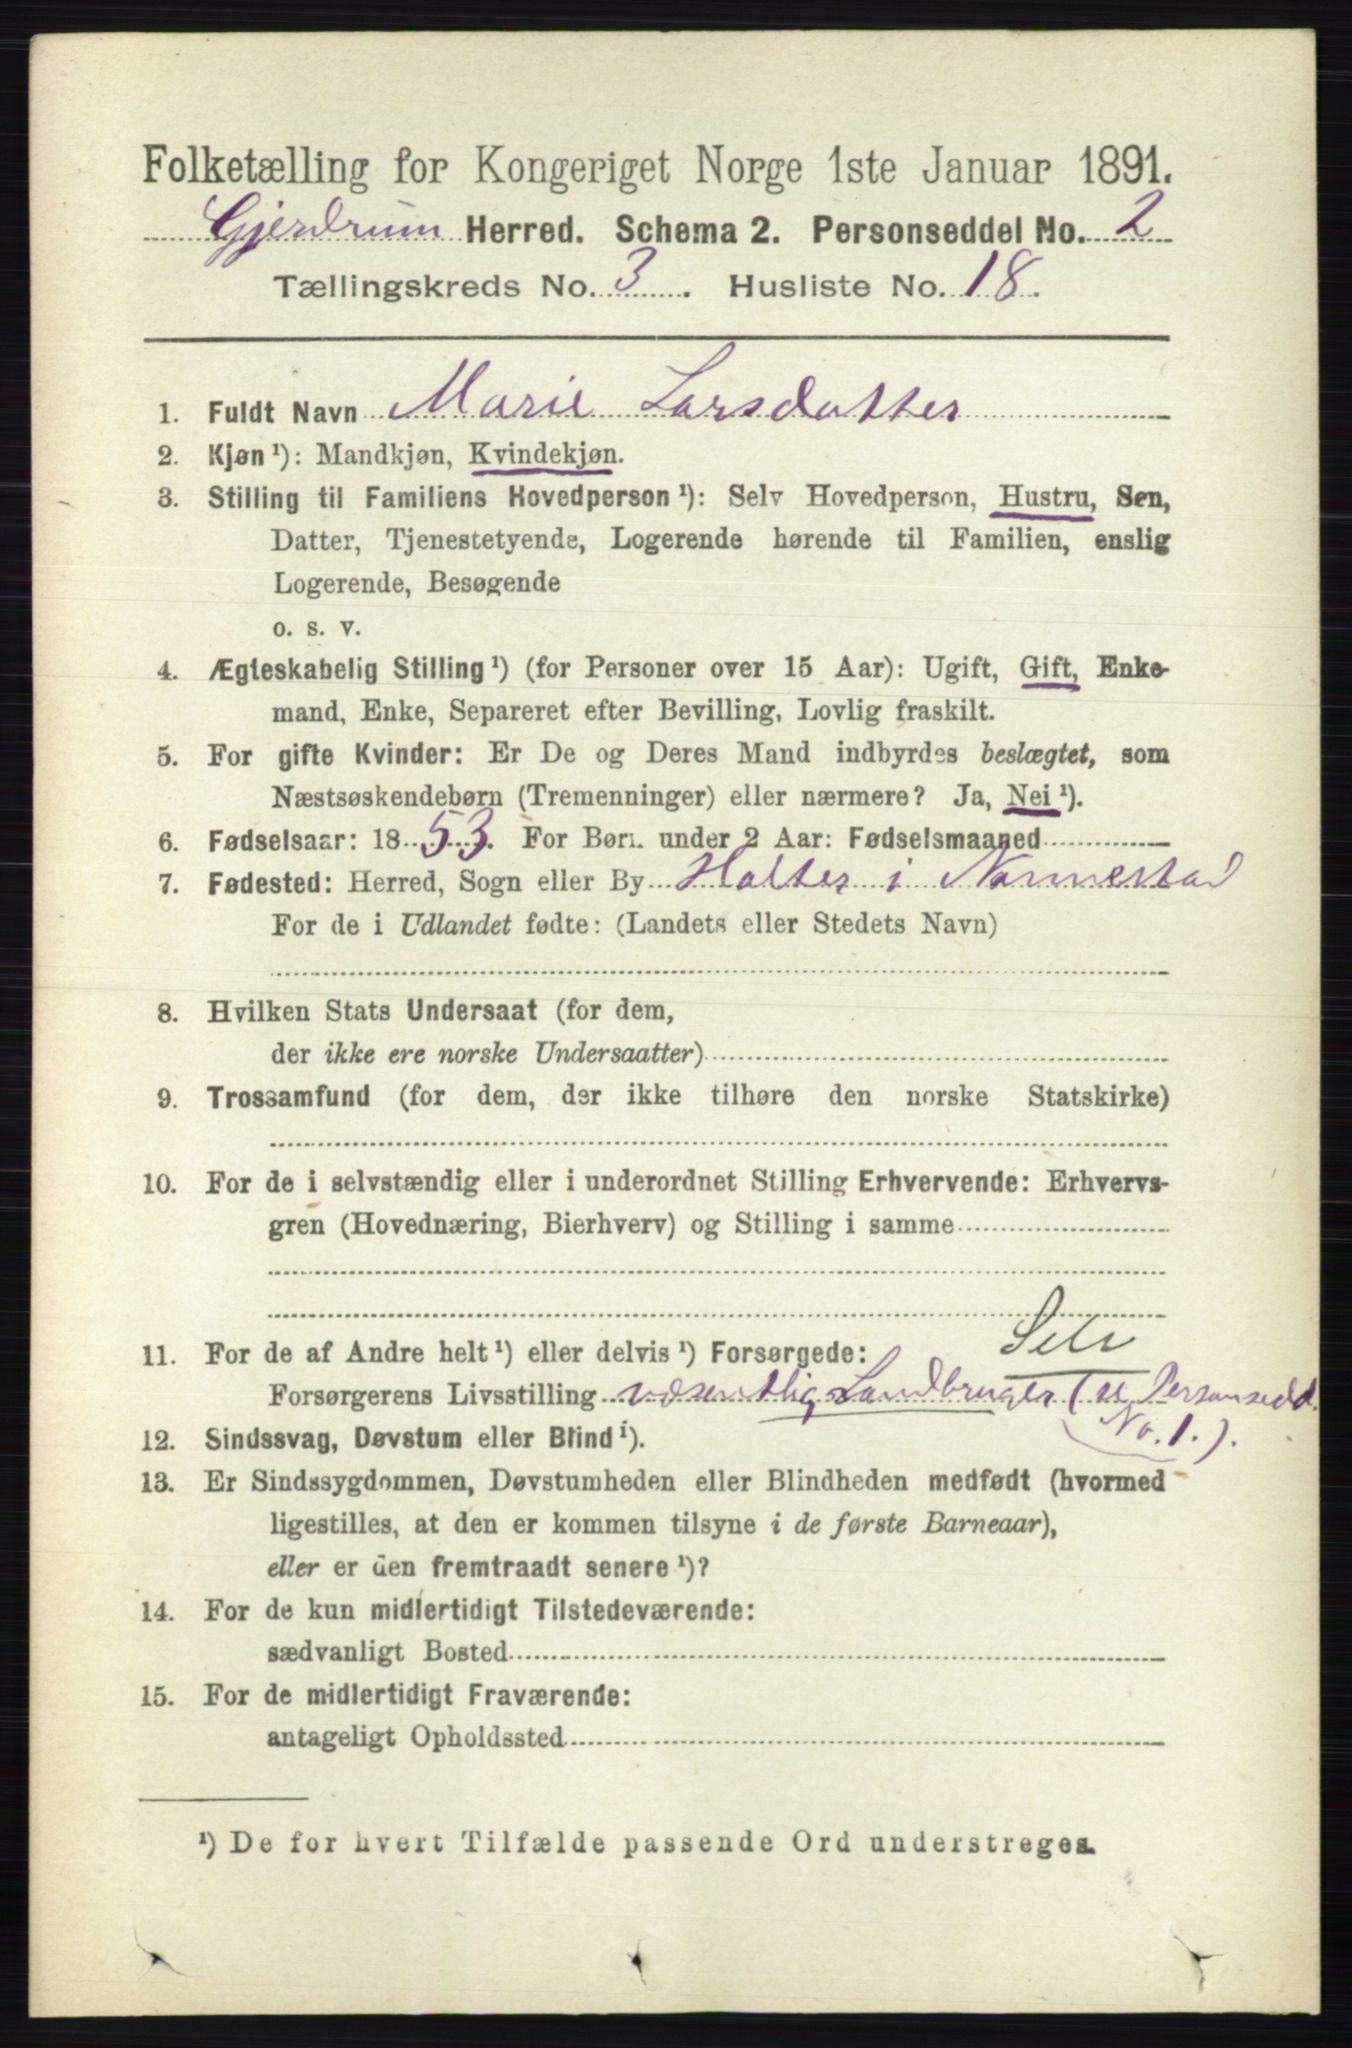 Folketælling for Kongeriget Norge 1ste Januar 1891.
Gjerdrum Herred. Schema 2. Personseddel No. 2
Tællingskreds No. 3. Husliste No. 18.
1. Fuldt Navn Marie Larsdatter
2. Kjøn ¹): Mandkjøn, Kvindekjøn.
3. Stilling til Familiens Hovedperson ¹): Selv Hovedperson, Hustru, Søn,
Datter, Tjenestetyende, Logerende hørende til Familien, enslig
Logerende, Besøgende
o. s. v.
4. Ægteskabelig Stilling ¹) (for Personer over 15 Aar): Ugift, Gift, Enke-
mand, Enke, Separeret efter Bevilling, Lovlig fraskilt.
5. For gifte Kvinder: Er De og Deres Mand indbyrdes beslægtet, som
Næstsøskendebørn (Tremenninger) eller nærmere? Ja, Nei ¹).
6. Fødselsaar: 1853. For Børn under 2 Aar: Fødselsmaaned
7. Fødested: Herred, Sogn eller By Holter i Nannestad
For de i Udlandet fødte: (Landets eller Stedets Navn)
8. Hvilken Stats Undersaat (for dem,
der ikke ere norske Undersaatter)
9. Trossamfund (for dem, der ikke tilhøre den norske Statskirke)
10. For de i selvstændig eller i underordnet Stilling Erhvervende: Erhvervs-
gren (Hovednæring, Bierhverv) og Stilling i samme
Selv
11. For de af Andre helt ¹) eller delvis ¹) Forsørgede:
Forsørgerens Livsstilling væsentlig Landbruger (se Personsedd.
No. 1.).
12. Sindssvag, Døvstum eller Blind ¹).
13. Er Sindssygdommen, Døvstumheden eller Blindheden medfødt (hvormed
ligestilles, at den er kommen tilsyne i de første Barneaar),
eller er den fremtraadt senere ¹)?
14. For de kun midlertidigt Tilstedeværende:
sædvanligt Bosted
15. For de midlertidigt Fraværende:
antageligt Opholdssted
¹) De for hvert Tilfælde passende Ord understreges.